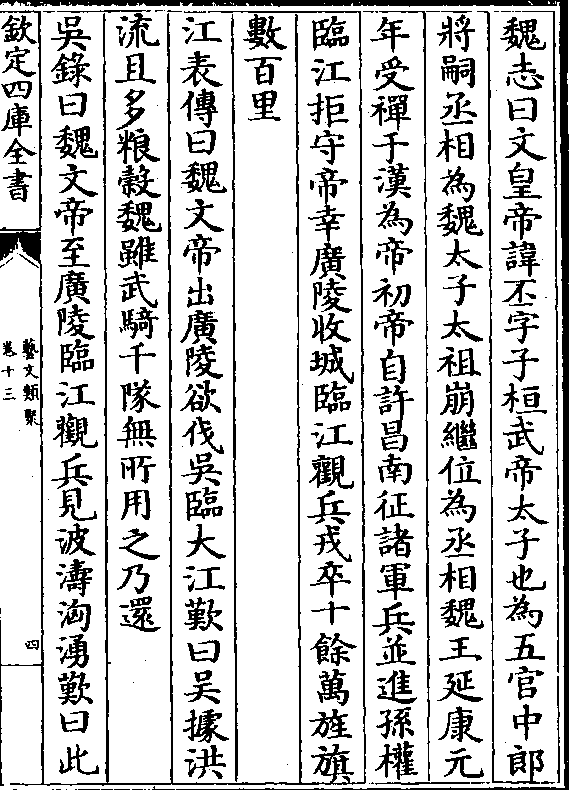 魏志曰文皇帝諱丕字子桓武帝太子也為五官中郎
將嗣丞相為魏太子太祖崩繼位為丞相魏王延康元
年受禪于漢為帝初帝自許昌南征諸軍兵並進孫權
臨江拒守帝幸廣陵收城臨江觀兵戎卒十餘萬旌旗
數百里
江表傳曰魏文帝出廣陵欲伐吳臨大江歎曰吳據洪
流且多粮穀魏雖武騎千隊無所用之乃還
吳錄曰魏文帝至廣陵臨江觀兵見波濤洶湧歎曰此
欽定四庫全書
藝文類聚
卷十三
四